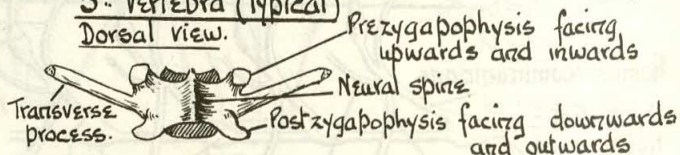 3rd Vertebra (Typical)
Dorsal view.
Prezygapophysis facing
upwards and inwards
Neural spine
Transverse
process.
Postzygapophysis facing downwards
and outwards